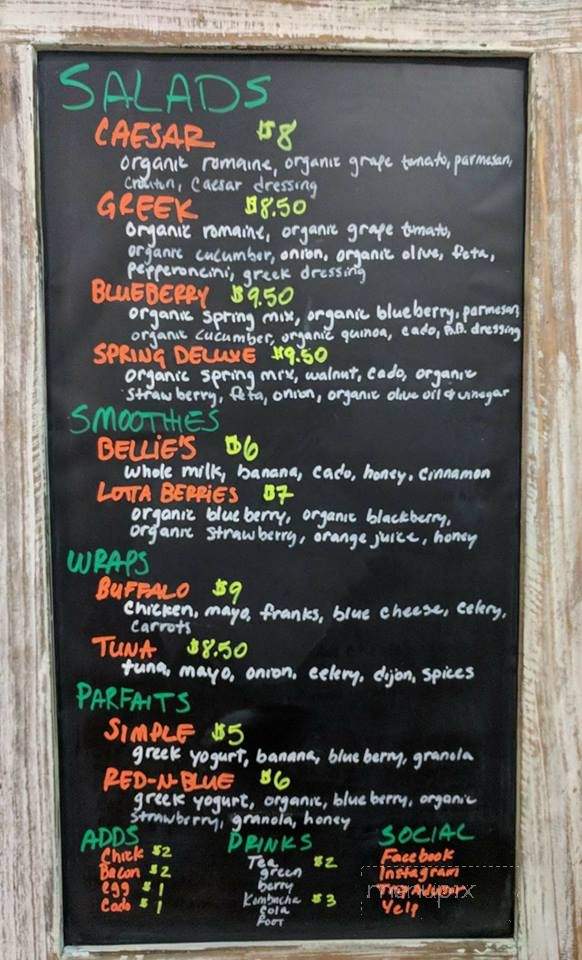 SALADS
CAESAR $8
organic romaine, organic grape tomato, parmesan,
crouton, caesar dressing
GREEK $8.50
organic romaine, organic grape tomato,
organic cucumber, onion, organic olive, feta,
pepperoncini, greek dressing
BLUEBERRY $9.50
organic spring mix, organic blueberry, parmesan,
organic cucumber, organic quinoa, cado, B.B. dressing
SPRING DELUXE $9.50
organic spring mix, walnut, cado, organic
strawberry, feta, onion, organic olive oil & vinegar
SMOOTHIES
BELLIE'S $6
whole milk, banana, cado, honey, cinnamon
LOTTA BERRIES $7
organic blueberry, organic blackberry,
organic strawberry, orange juice, honey
WRAPS
BUFFALO $9
chicken, mayo, franks, blue cheese, celery,
carrots
TUNA $8.50
tuna, mayo, onion, celery, dijon, spices
PARFAITS
SIMPLE $5
greek yogurt, banana, blueberry, granola
RED-N-BLUE $6
greek yogurt, organic, blueberry, organic
strawberry, granola, honey
ADDS
Chick $2
Bacon $2
egg $1
Cado $1
DRINKS
Tea $2
green
berry
Kombucha $3
Cola
ROOT
SOCIAL
Facebook
Instagram
Yelp
menupix